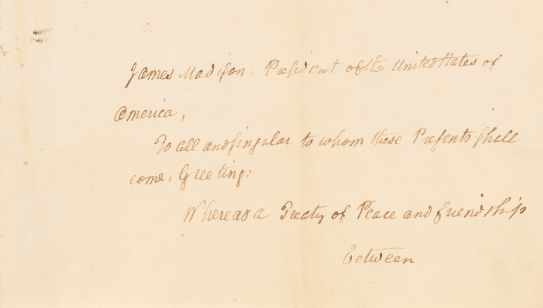 James Madison, President of the United States of
America,
To all and singular to whom these Presents shall
come, Greeting:
Whereas a Treaty of Peace and friendship
between